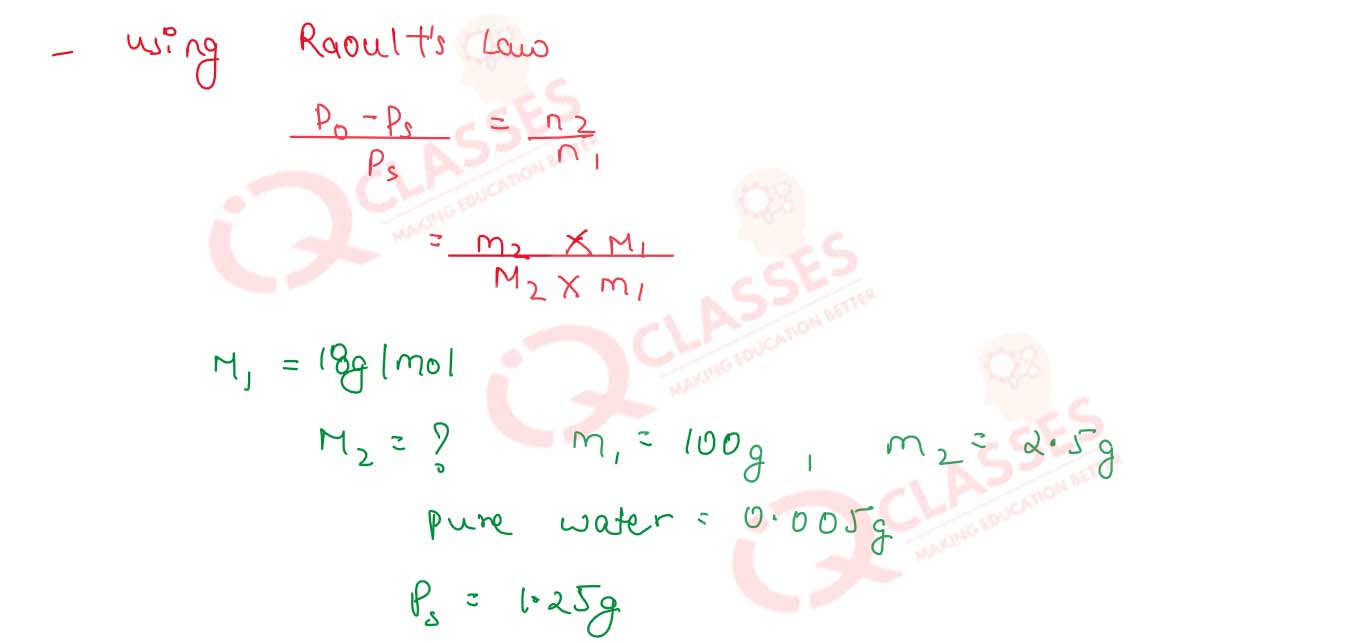 - using Raoult's Law
P₀ - Pₛ / Pₛ = n₂ / n₁
= m₂ × M₁ / M₂ × m₁
M₁ = 18g/mol
M₂ = ? m₁ = 100g, m₂ = 2.5g
pure water = 0.005g
Pₛ = 1.25g
iQ CLASSES
MAKING EDUCATION BETTER
iQ CLASSES
MAKING EDUCATION BETTER
iQ CLASSES
MAKING EDUCATION BETTER